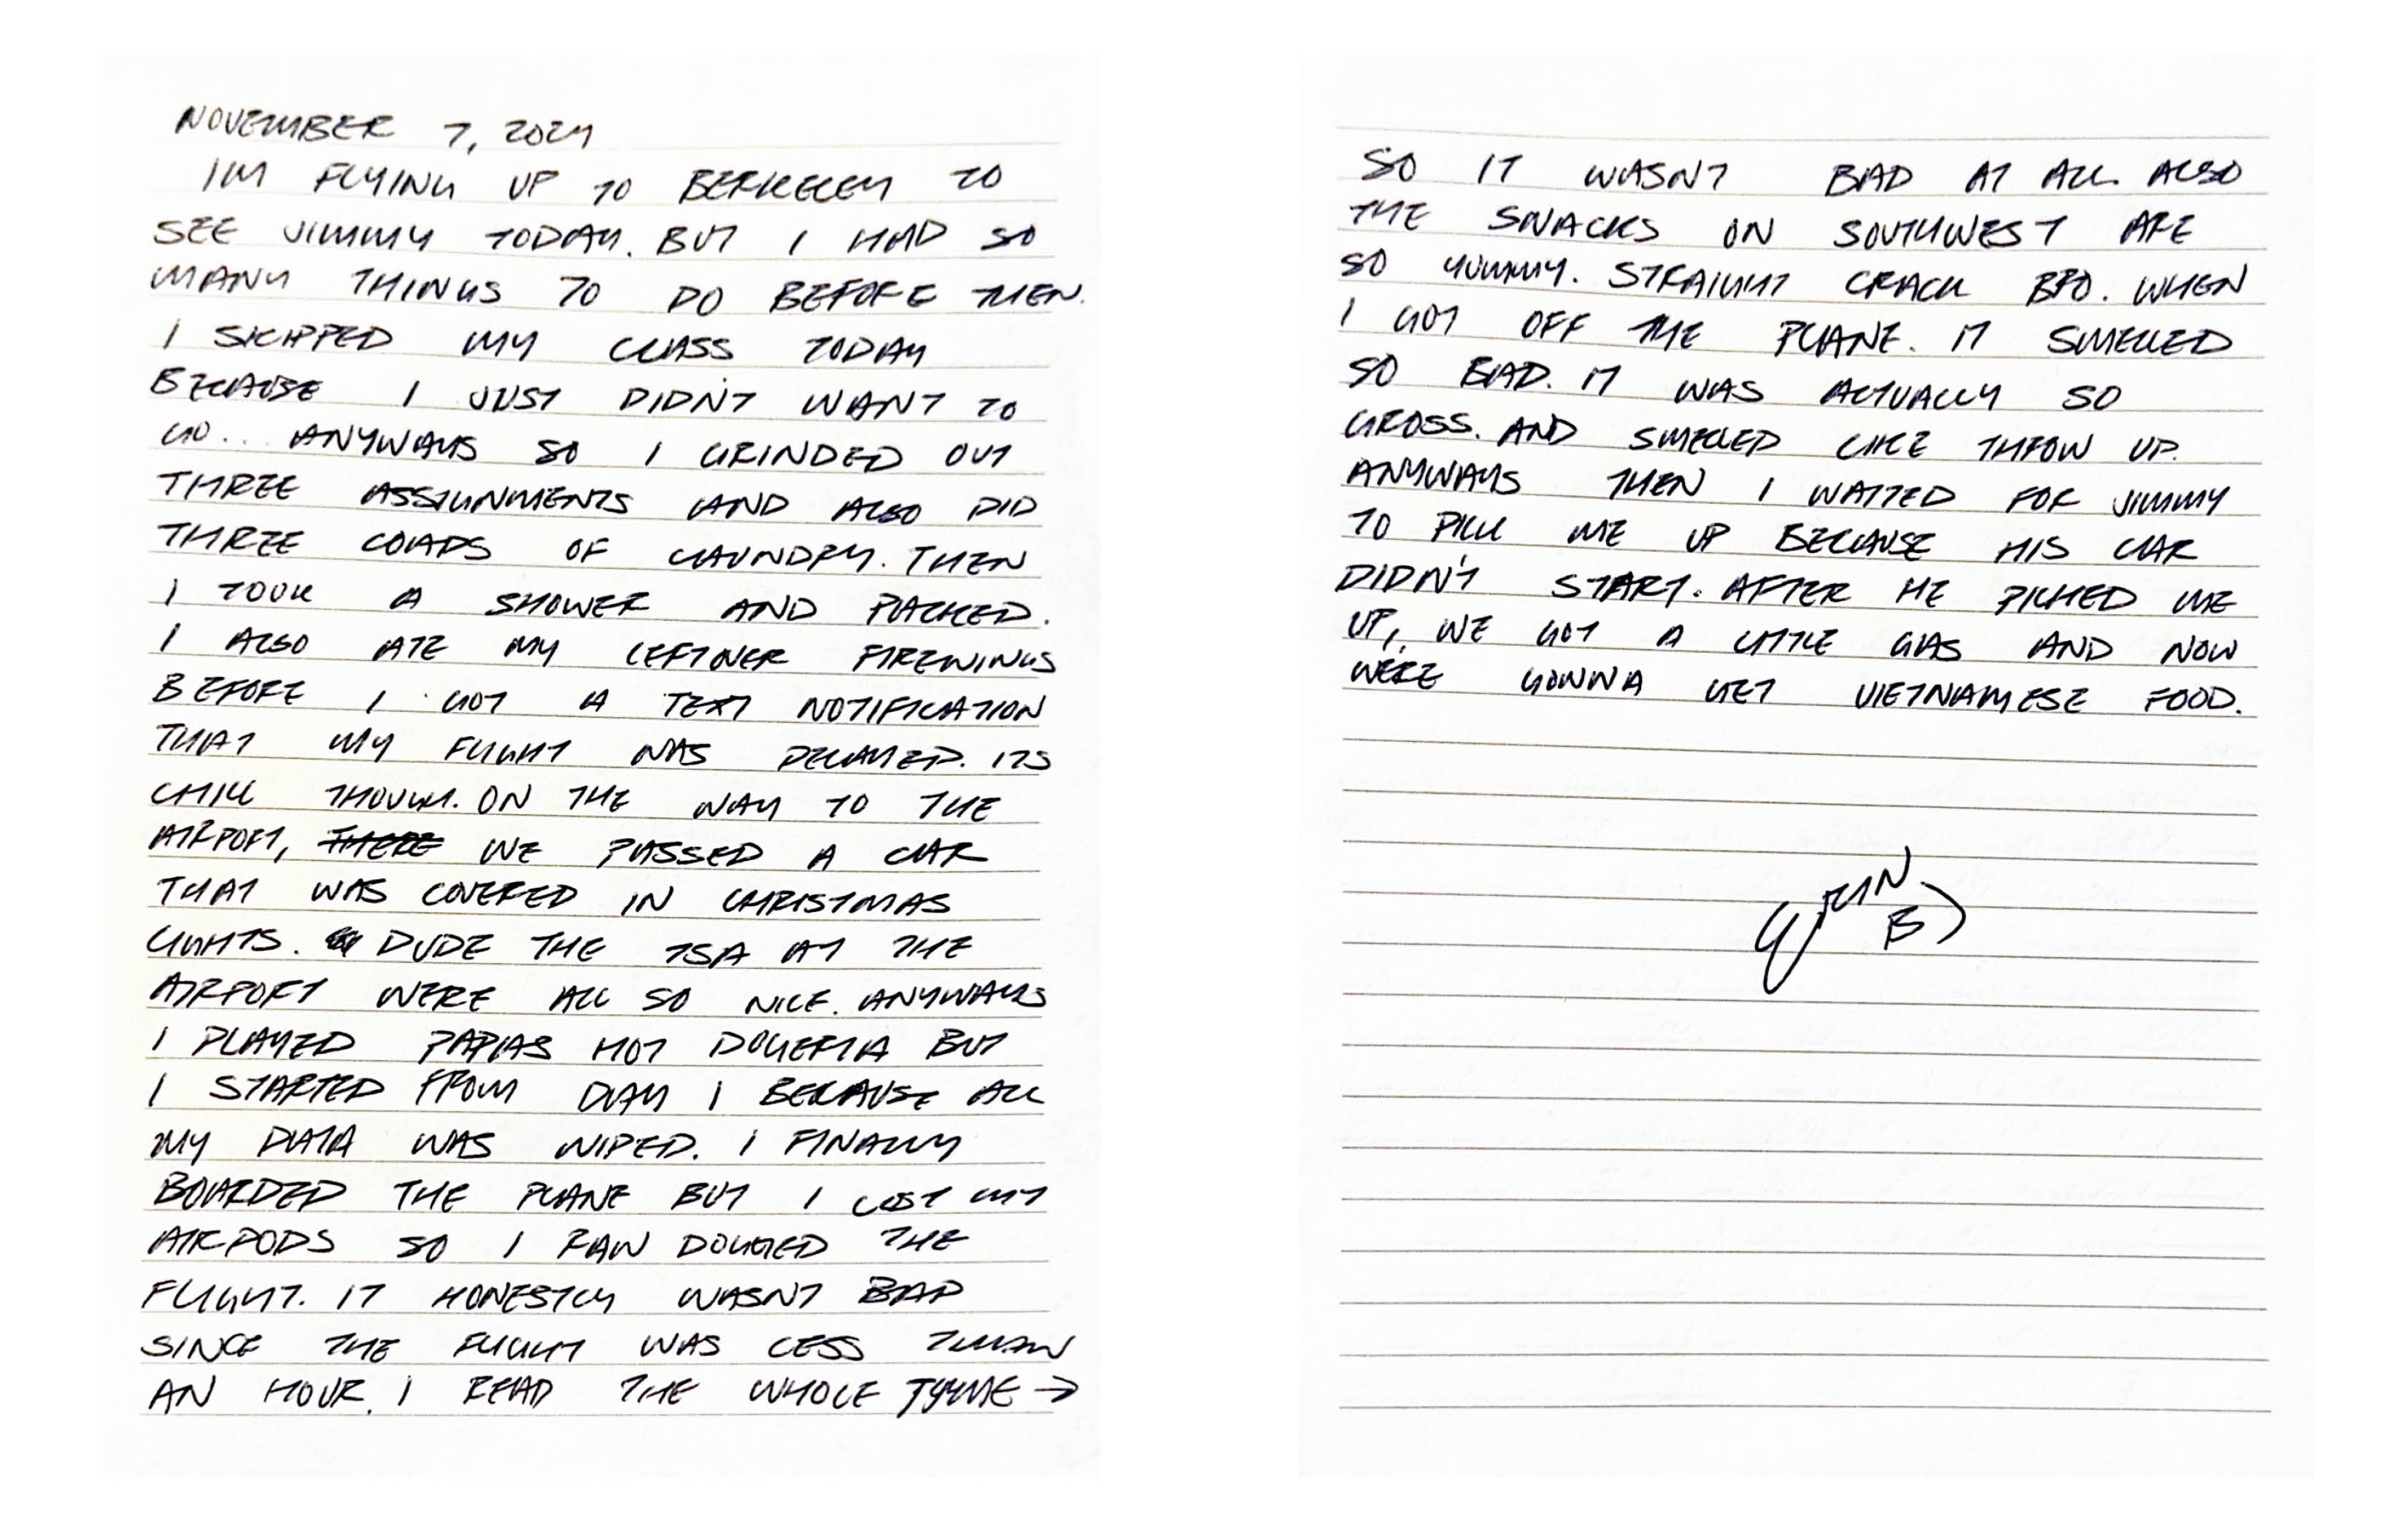 NOVEMBER 7, 2024
IM FLYING UP TO BERKELEY TO
SEE JIMMY TODAY. BUT I HAD SO
MANY THINGS TO DO BEFORE THEN.
I SKIPPED MY CLASS TODAY
BECAUSE I JUST DIDN'T WANT TO
GO... ANYWAYS SO I GRINDED OUT
THREE ASSIGNMENTS AND ALSO DID
THREE LOADS OF LAUNDRY. THEN
I TOOK A SHOWER AND PACKED.
I ALSO ATE MY LEFTOVER FIREWINGS
BEFORE I GOT A TEXT NOTIFICATION
THAT MY FLIGHT WAS DELAYED. ITS
CHILL THOUGH. ON THE WAY TO THE
AIRPORT, THERE WE PASSED A CAR
THAT WAS COVERED IN CHRISTMAS
LIGHTS. DUDE THE TSA AT THE
AIRPORT WERE ALL SO NICE. ANYWAYS
I PLAYED PAPAS HOT DOGERIA BUT
I STARTED FROM DAY 1 BECAUSE ALL
MY DATA WAS WIPED. I FINALLY
BOARDED THE PLANE BUT I LOST MY
AIRPODS SO I RAW DOGGED THE
FLIGHT. IT HONESTLY WASNT BAD
SINCE THE FLIGHT WAS LESS THAN
AN HOUR. I READ THE WHOLE TYME →
SO IT WASNT BAD AT ALL. ALSO
THE SNACKS ON SOUTHWEST ARE
SO YUMMY. STRAIGHT CRACK BRO. WHEN
I GOT OFF THE PLANE. IT SMELLED
SO BAD. IT WAS ACTUALLY SO
GROSS. AND SMELLED LIKE THROW UP.
ANYWAYS THEN I WAITED FOR JIMMY
TO PICK ME UP BECAUSE HIS CAR
DIDN'T START. AFTER HE PICKED ME
UP, WE GOT A LITTLE GAS AND NOW
WE'RE GONNA GET VIETNAMESE FOOD.